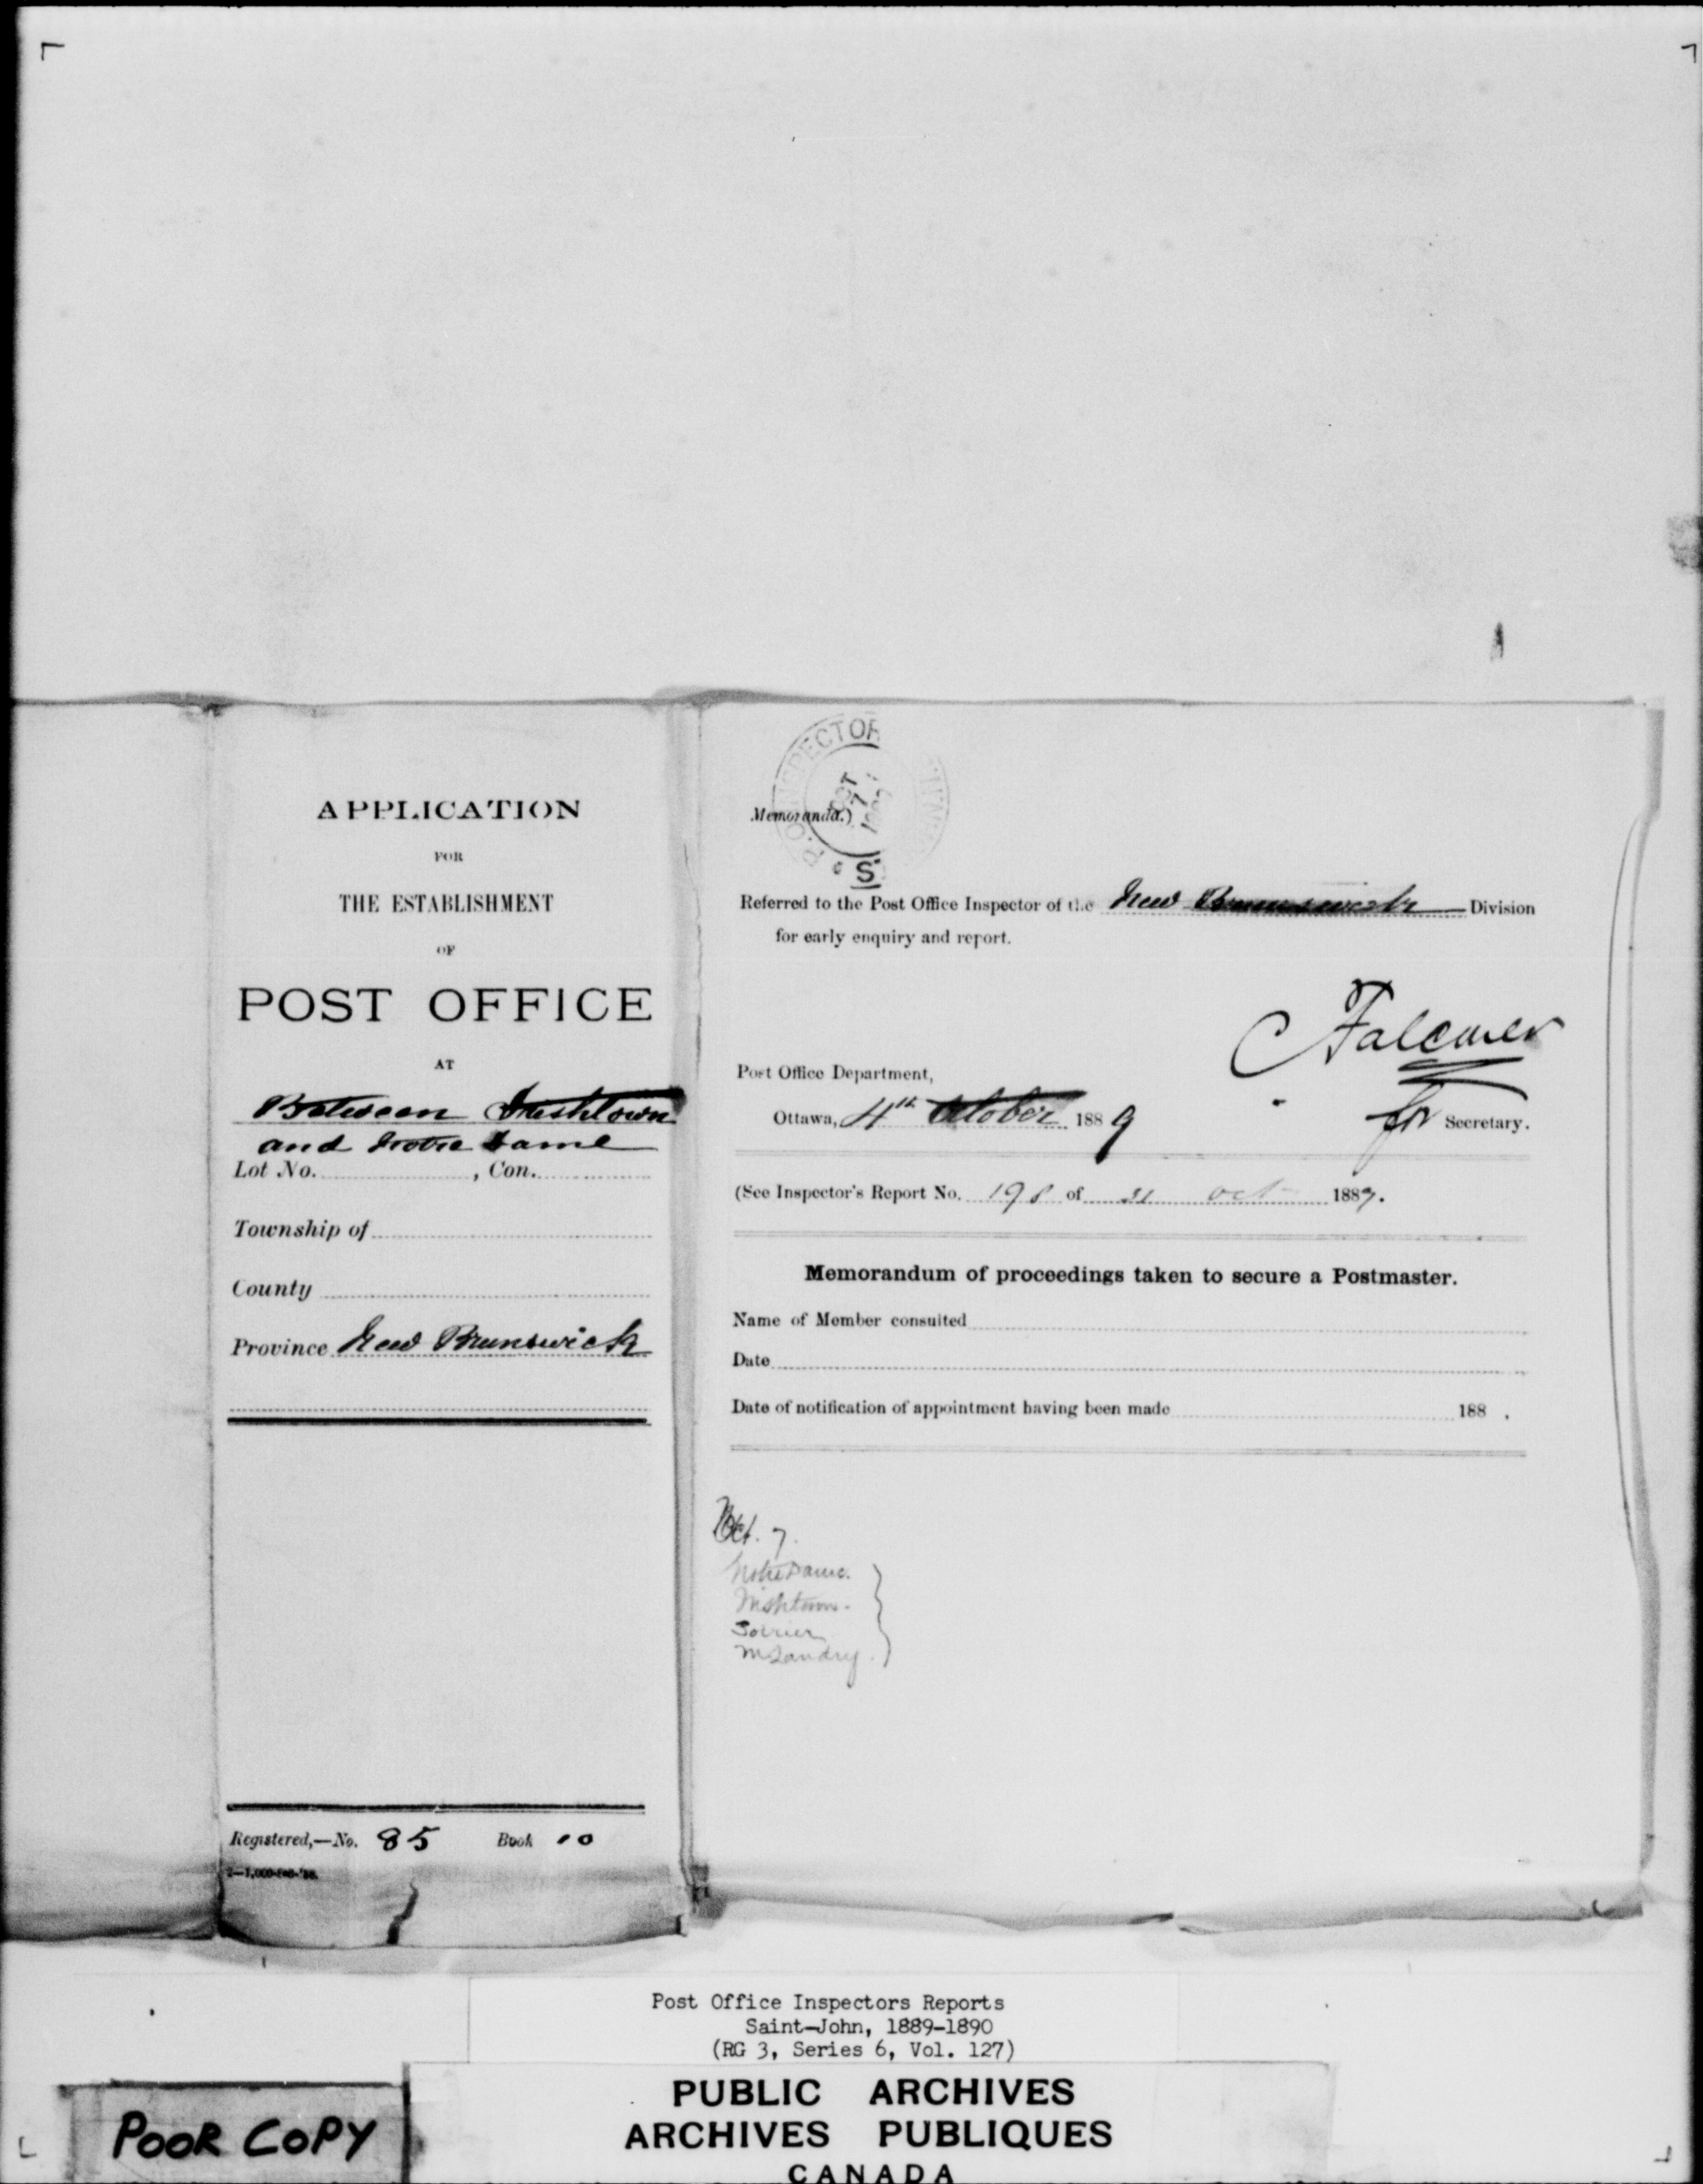 APPLICATION
FOR
THE ESTABLISHMENT
OF
POST OFFICE
AT
Between Irishtown
and Notre Dame
Lot No. , Con.
Township of
County
Province New Brunswick
Registered,—No. 85 Book 10
P.O. INSPECTOR
OCT
7
S
Memoranda.)
Referred to the Post Office Inspector of the New Brunswick Division
for early enquiry and report.
Post Office Department,
Ottawa, 4th October 1889
for Secretary.
(See Inspector's Report No. 198 of 31 Oct 1889.
Memorandum of proceedings taken to secure a Postmaster.
Name of Member consulted
Date
Date of notification of appointment having been made 188 .
Oct. 7.
Notre Dame.
Irishtown.
Landry.
Post Office Inspectors Reports
Saint-John, 1889-1890
(RG 3, Series 6, Vol. 127)
POOR COPY
PUBLIC ARCHIVES
ARCHIVES PUBLIQUES
CANADA